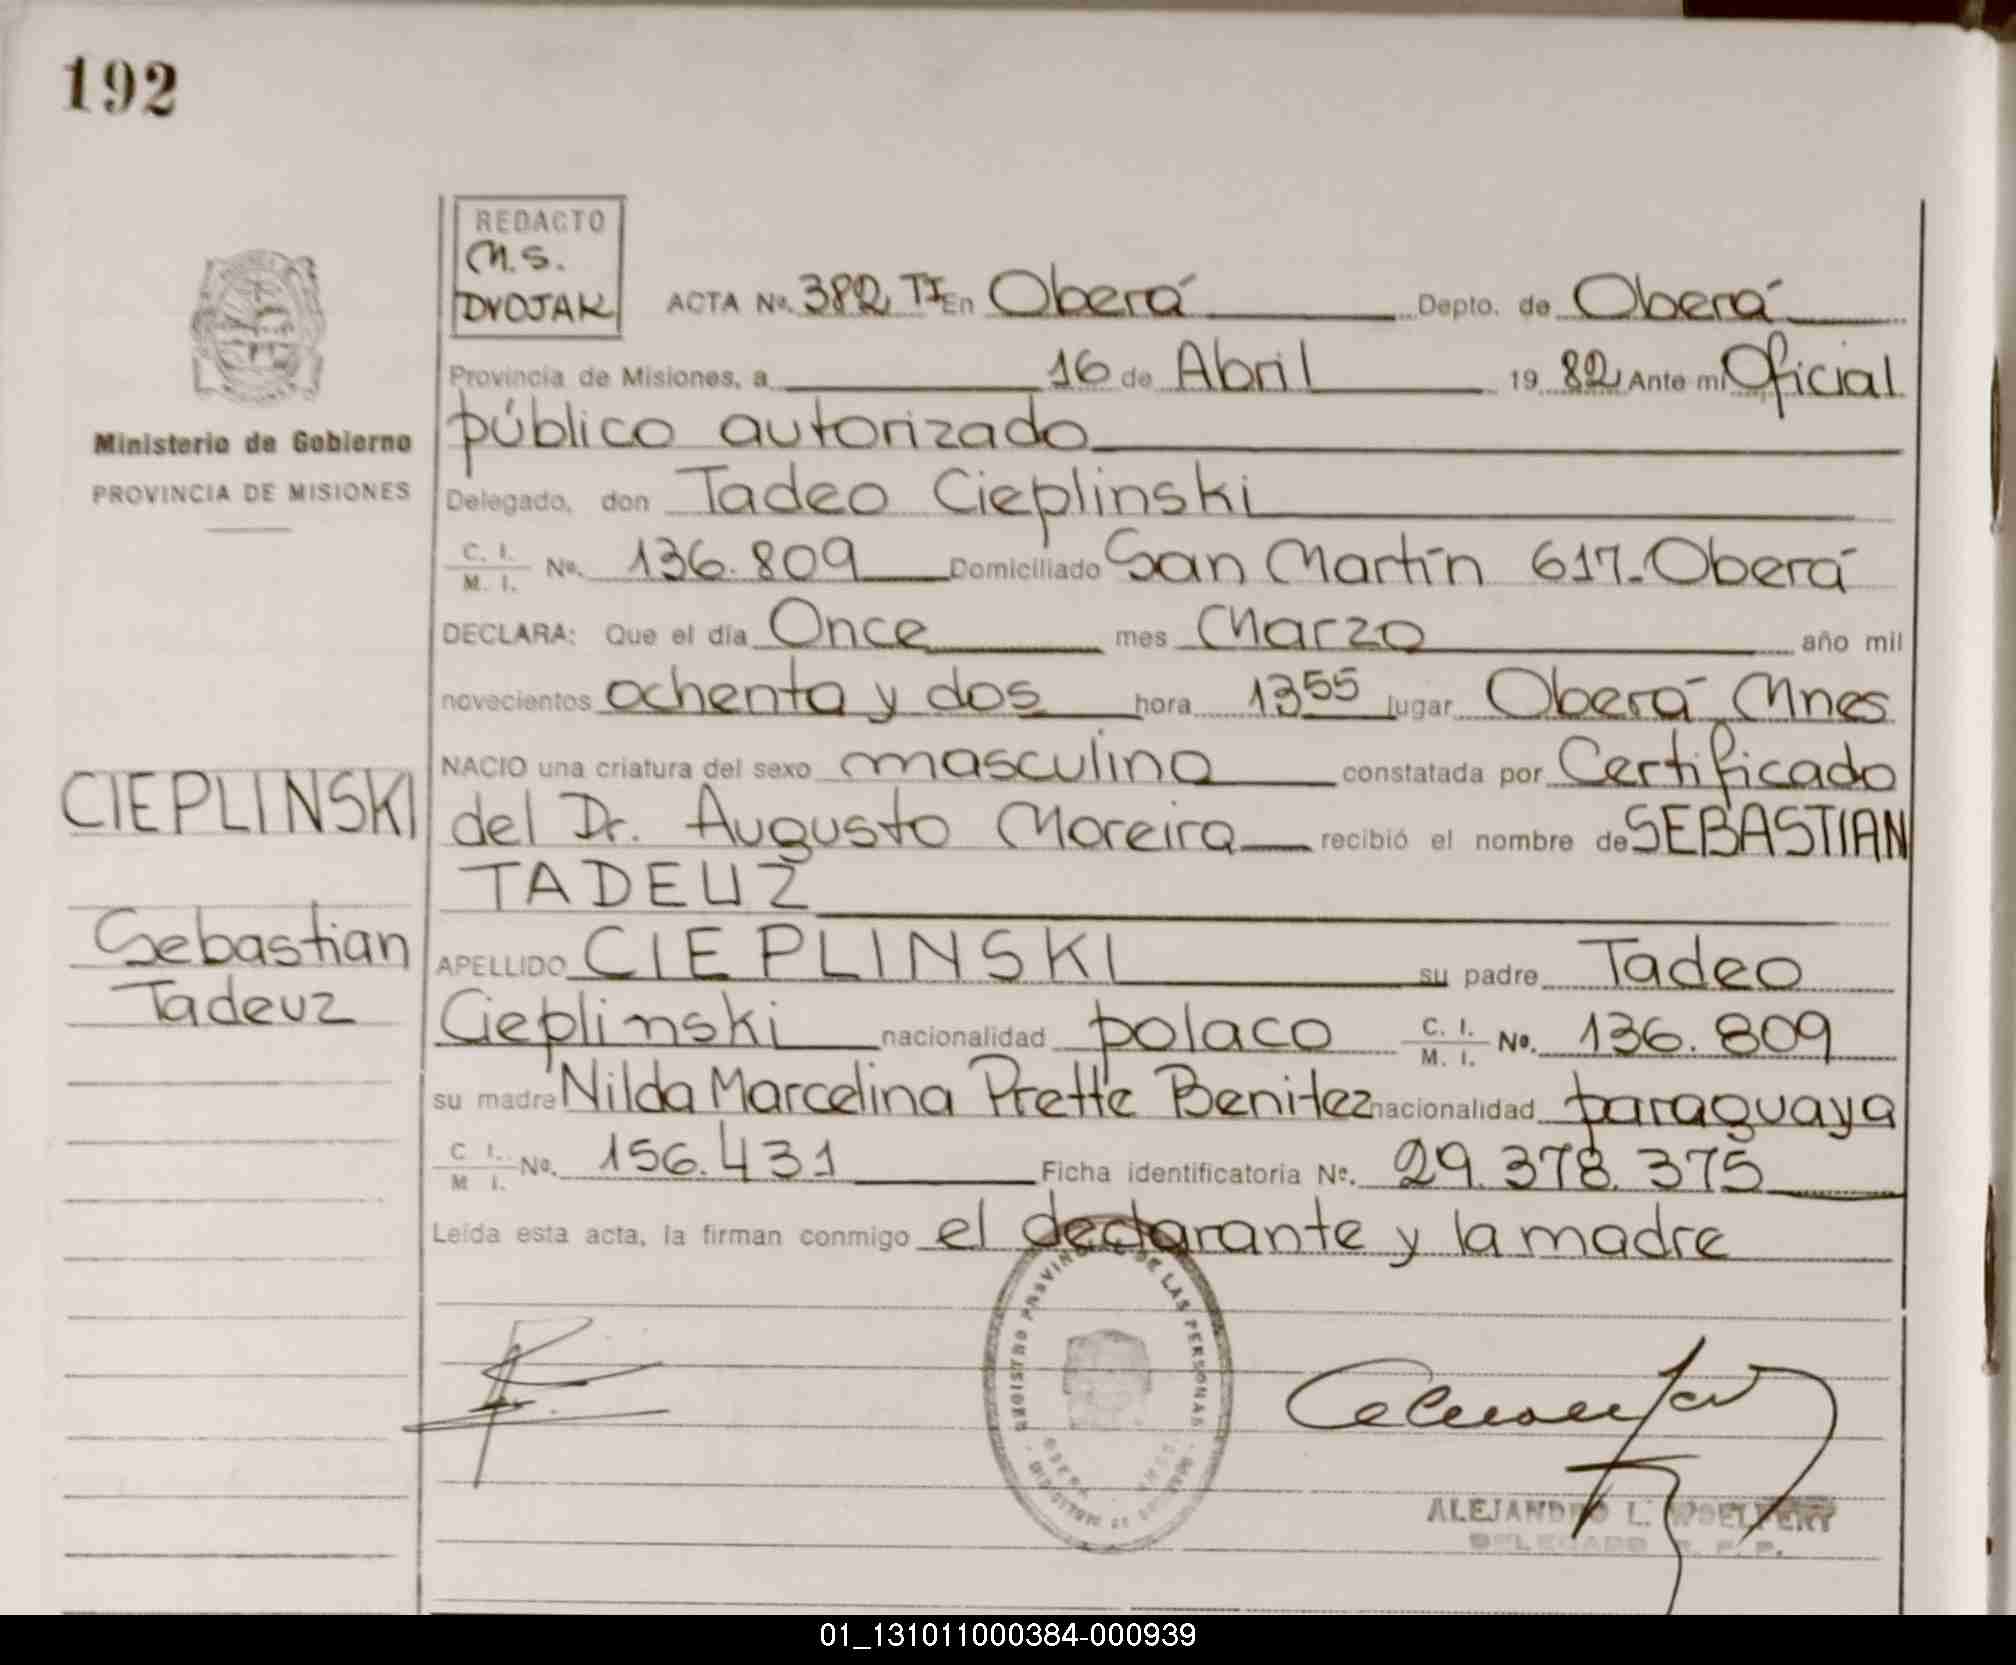 192
REDACTO
M.S.
DVOJAK
ACTA No. 382 TI En Oberá Depto. de Oberá
Provincia de Misiones, a 16 de Abril 19 82 Ante mi Oficial
público autorizado
Ministerio de Gobierno
PROVINCIA DE MISIONES
Delegado, don Tadeo Cieplinski
C. I. M. I. No. 136.809 Domiciliado San Martín 617-Oberá
DECLARA: Que el día Once mes Marzo año mil
novecientos ochenta y dos hora 13 55 lugar Oberá Mnes
NACIO una criatura del sexo masculino constatada por Certificado
CIEPLINSKI
del Dr. Augusto Moreira recibió el nombre de SEBASTIAN
TADEUZ
Sebastian
Tadeuz
APELLIDO CIEPLINSKI su padre Tadeo
Cieplinski nacionalidad polaco C. I. M. I. No. 136.809
su madre Nilda Marcelina Prette Benitez nacionalidad paraguaya
C I. M I. No. 156.431 Ficha identificatoria No. 29.378.375
Leída esta acta, la firman conmigo el declarante y la madre
REGISTRO DE LAS PERSONAS
OBERA
ALEJANDRO L. WOELFERT
DELEGADO R. P. P.
01_131011000384-000939